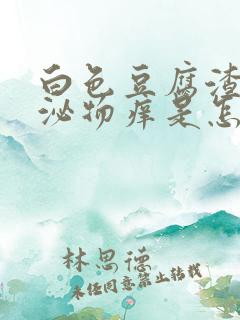 白色豆腐渣
泌物痒是怎
林思德
未经同意禁止转载